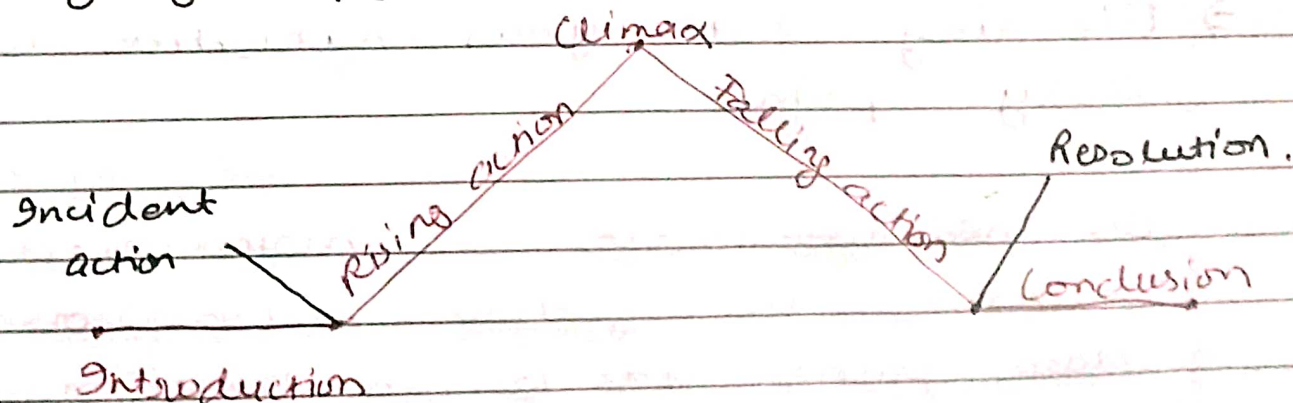 Climax
Rising action
Falling action
Resolution.
Incident
action
Conclusion
Introduction